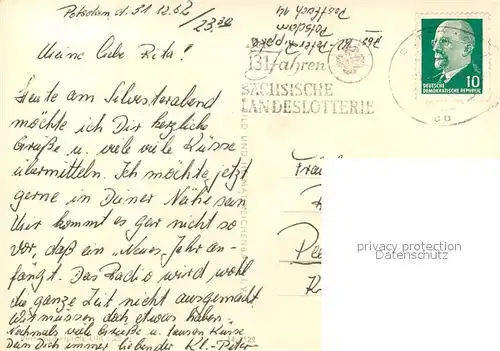 Potsdam d. 31.12.62
23.20
Meine liebe Rita!
Heute am Silvesterabend
möchte ich Dir herzliche
Grüße u. viele viele Küsse
übermitteln. Ich möchte jetzt
gerne in Deiner Nähe sein
Mir kommt es gar nicht so
vor, daß ein "Neues" Jahr an-
fängt. Das Radio wird wohl
die ganze Zeit nicht ausgemacht
wir müssen doch etwas haben
Nochmals viele Grüße u. tausend Küsse
Dein Dich immer liebender Kl.-Peter
Potsdam
Postfach 14
131 Jahren
SÄCHSISCHE
LANDESLOTTERIE
10
DEUTSCHE
DEMOKRATISCHE REPUBLIK
BILD UND HEIMAT REICHENBACH
privacy protection
Datenschutz